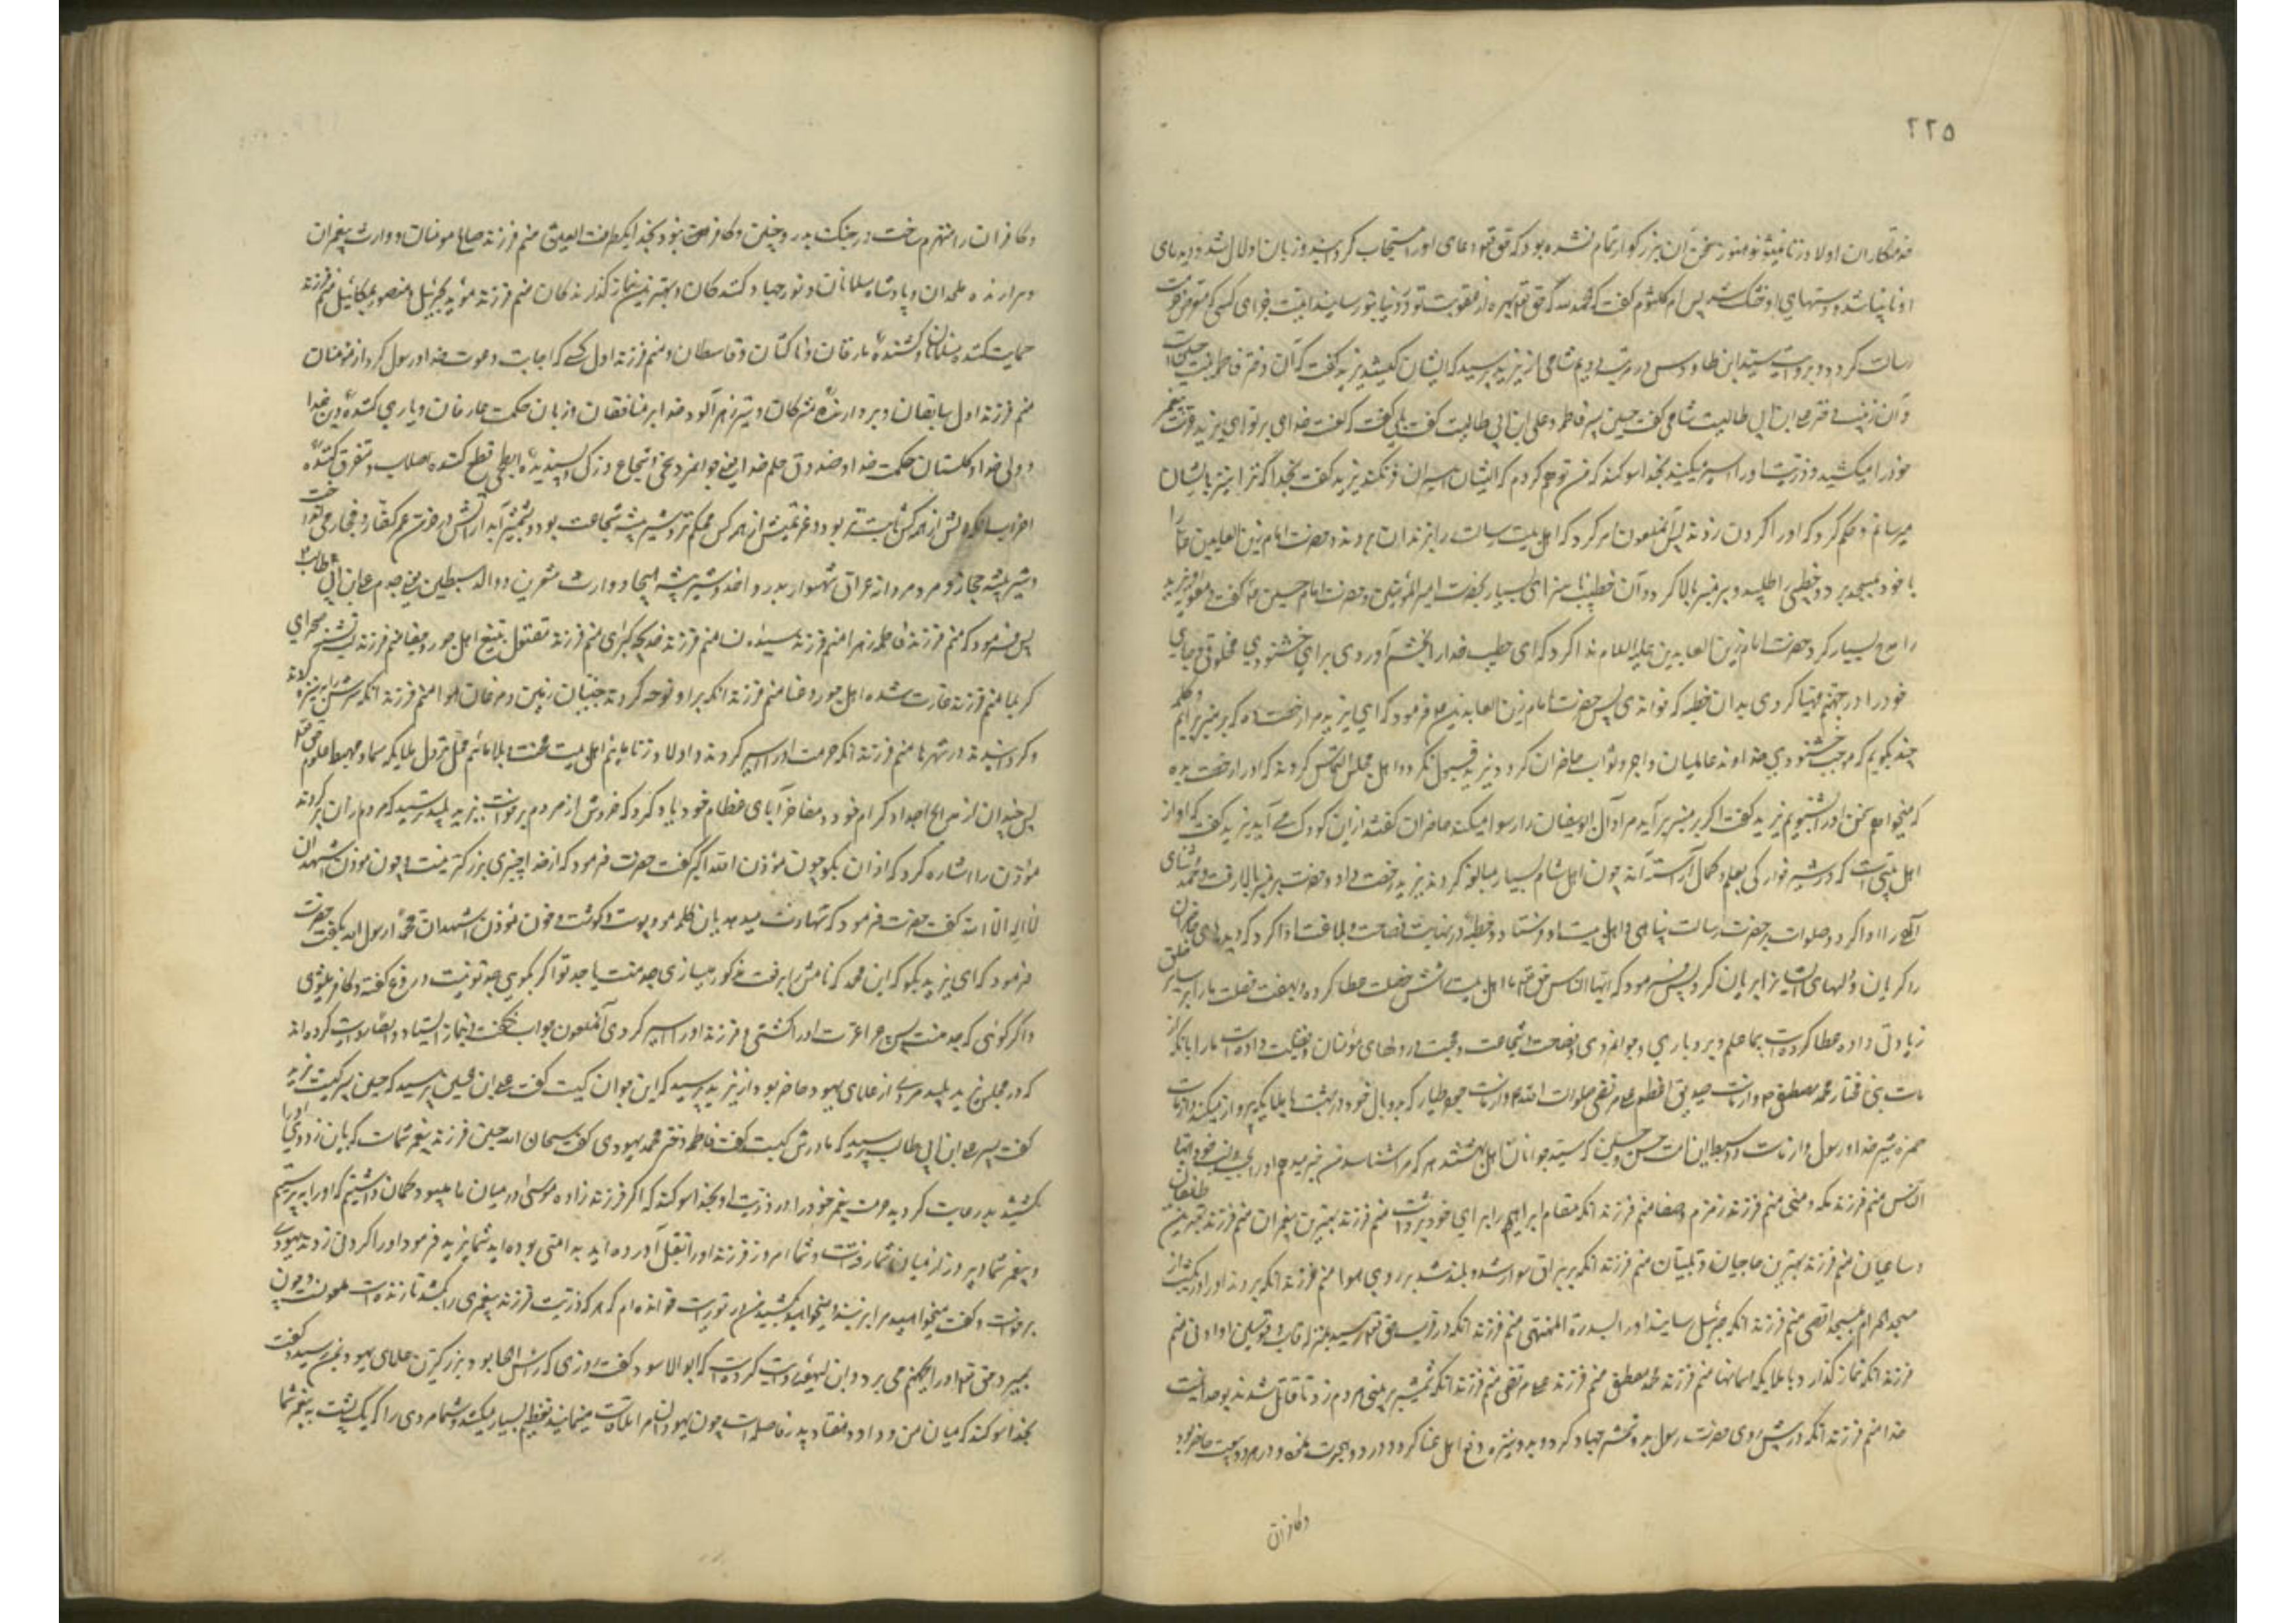 ۲۲۵
خدمتکاران اولاد زنا نمیشوند هنوز سخن آن بزرگوار تمام نشده بود که حق تعالی دعای او را مستجاب گردانید و زبان او لال شد و دیده‌های
او نابینا شد و دستهای او خشک شد پس ام کلثوم گفت که الحمد لله که حق تعالی بهره از عقوبت تو در دنیا بتو رسانید اینست جزای کسی که متعرض حرم
رسالت گردد و بروایت سید ابن طاوس در مرتبه دیم شامی از یزید پرسید که ایشان کیستند یزید گفت که آن دختر فاطمه بنت حسین است
و آن زینب دختر علی ابن ابی طالبست شامی گفت حسین پسر فاطمه و علی ابن ابی طالب گفت بلی گفت که لعنت خدای بر تو ای یزید عترت پیغمبر
خود را میکشید و ذریت او را اسیر میکنید بخدا سوگند که من توهم کردم که ایشان اسیران فرنگند یزید گفت بخدا که ترا نیز بایشان
میرسانم و حکم کرد که او را گردن زدند پس آنملعون امر کرد که اهل بیت رسالت را بزندان بردند و حضرت امام زین العابدین علیه را
با خود بمسجد برد و خطیبی را طلبید و بر منبر بالا کرد و آن خطیب ناسزای بسیار بحضرت امیرالمؤمنین و حضرت امام حسین ع گفت و معویه و یزید
را مدح بسیار کرد حضرت امام زین العابدین علیه السلام ندا کرد که ای خطیب خدا را بخشم آوردی برای خشنودی مخلوقی و جای
خود را در جهنم مهیا کردی بدان خطبه که خواندی پس حضرت امام زین العابدین ع فرمود که ای یزید مرا رخصت ده که بر منبر برآیم و کلمه
چند بگویم که موجب خشنودی خداوند عالمیان و اجر و ثواب حاضران گردد یزید قبول نکرد و اهل مجلس التماس کردند که او را رخصت بده
که میخواهیم سخن او را بشنویم یزید گفت اگر بر منبر برآید مرا و آل ابوسفیان را رسوا میکند حاضران گفتند از این کودک چه می آید یزید گفت که او از
اهل بیتی است که در شیرخوارگی بعلم و کمال آراسته‌اند چون اهل شام بسیار مبالغه کردند یزید رخصت داد و حضرت بر منبر بالا رفت و حمد و ثنای
الهی را ادا کرد و صلوات بر حضرت رسالت پناهی و اهل بیت او فرستاد و خطبه در نهایت فصاحت و بلاغت ادا کرد که دیده‌های حاضران
را گریان و دلهای ایشان را بریان کرد پس فرمود که ایها الناس حق تعالی ما اهل بیت را شش خصلت عطا کرده و بهفت فضلت ما را بر سایر خلق
زیادتی داده عطا کرده است بما علم و بردباری و جوانمردی و فصاحت و شجاعت و محبت در دلهای مؤمنان و فضیلت داده است ما را بآنکه از
ماست نبی مختار محمد مصطفی ص و از ماست صدیق اعظم علی مرتضی صلوات الله علیه و از ماست جعفر طیار که با دو بال خود در بهشت با ملایکه پرواز میکند و از ماست
حمزه شیر خدا و رسول و از ماست دو سبط این امت حسن و حسین که سید جوانان اهل بهشتند هر که مرا شناسد من خبر میدهم او را بحسب و نسب خود ایها
الناس منم فرزند مکه و منی منم فرزند زمزم و صفا منم فرزند آنکه مقام ابراهیم را بردای خود برداشت منم فرزند بهترین پیغمبران منم فرزند بهترین طایفان
و ساعیان منم فرزند بهترین حاجیان و تلبیتان منم فرزند آنکه بر براق سوار شد و بلند شد بر روی هوا منم فرزند آنکه بردند او را در یک شب از
مسجدالحرام بمسجد اقصی منم فرزند آنکه جبرئیل رسانید او را بسدرة المنتهی منم فرزند آنکه در قرب حق تعالی رسید بمنزله قاب قوسین او ادنی منم
فرزند آنکه نماز گذارد با ملایکه آسمانها منم فرزند محمد مصطفی منم فرزند علی مرتضی منم فرزند آنکه شمشیر بر بینی مردم زد تا قائل شدند بوحدانیت
خدا منم فرزند آنکه در پیش روی حضرت رسول بدو شمشیر جهاد کرد و بدو نیزه دفع اهل عنا کرد و در دو هجرت کرد و در هر دو بیعت حاضر بود
و کافران
و کافران را منهزم ساخت در جنگ بدر و حنین و کافر نبود بخدا یک طرفة العین منم فرزند صالح مومنان و وارث پیغمبران
و برارنده ملحدان و پادشاه مسلمانان و نور جهاد کنندگان و بهترین نماز گذارندگان منم فرزند مؤید بجبرئیل و منصور بمیکائیل منم فرزند
حمایت کننده مسلمانان و کشنده مارقان و ناکثان و قاسطان و منم فرزند اول کسی که اجابت دعوت خدا و رسول کرد از مؤمنان
منم فرزند اول سابقان و بردارنده مشرکان و تیر زهرآلود خدا بر منافقان و زبان حکمت عارفان و یاری کننده دین خدا
و ولی خدا و گلستان حکمت خدا و صندوق علم خدا یعنی جوانمرد سخی و شجاع و زکی و پسندیده ابطحی قطع کننده اصلاب و متفرق کننده
احزاب آنکه دلش از همه کس ثابت‌تر بود و عزیمتش از هر کس محکمتر و شیر بیشه شجاعت بود
و شیر بیشه حجاز و مرد مردانه عراق شهسوار بدر و احد و شیر بیشه هیجا و وارث مشعرین و والد سبطین یعنی جدم علی ابن ابی طالب ع
پس فرمود که منم فرزند فاطمه زهرا منم فرزند سیده نسا منم فرزند خدیجه کبری منم فرزند مقتول بتیغ اهل جور و جفا منم فرزند تشنه صحرای
کربلا منم فرزند غارت شده اهل جور و عنا منم فرزند آنکه بر او نوحه کردند جنیان زمین و مرغان هوا منم فرزند آنکه سرش را بر نیزه کردند
و گردانیدند در شهرها منم فرزند آنکه حرمت او را اسیر کردند و اولاد زنا مائیم اهل بیت محنت و بلا مائیم محل نزول ملایکه سما و مهبط علوم حق تعالی
پس چندان از مدایح اجداد کرام خود و مفاخر آبای عظام خود یاد کرد که خروش از مردم برخواست یزید پلید ترسید که مردم از آن برگردند
مؤذن را اشاره کرد که اذان بگو چون مؤذن الله اکبر گفت حضرت فرمود که از خدا چیزی بزرگتر نیست چون موذن اشهد ان
لا اله الا الله گفت حضرت فرمود که شهادت میدهد باین کلمه مو و پوست و گوشت و خون من چون مؤذن اشهد ان محمدا رسول الله بگفت حضرت
فرمود که ای یزید بگو که این محمد که نامش را برفعت مذکور میسازی جد منست یا جد تو اگر بگوئی جد تو نیست دروغ گفته و کافر میشوی
و اگر گوئی که جد منست پس چرا عترت او را کشتی و فرزند او را اسیر کردی آنملعون جواب نگفت و بنماز ایستاد و ایضا روایت کرده‌اند
که در مجلس یزید پلید مردی از علمای یهود حاضر بود از یزید پرسید که این جوان کیست گفت علی ابن حسین پرسید که حسین پسر کیست یزید
گفت پسر علی ابن ابی طالب پرسید که مادرش کیست گفت فاطمه دختر محمد یهودی گفت سبحان الله حسین فرزند پیغمبر شماست که باین زودی او را
کشتید بد رعایت کردید حرمت پیغمبر خود را در ذریت او بخدا سوگند که اگر فرزند زاده موسی در میان ما میبود گمان داشتیم که او را بپرستیم
و پیغمبر شما دیروز از میان شما رفته است و شما امروز فرزند او را بقتل آورده‌اید بد امتی بوده‌اید شما یزید فرمود او را گردن زدند یهودی
برخواست و گفت میخواهید مرا بزنید و میخواهید بکشید من در توریت خوانده‌ام که هر که ذریت فرزند پیغمبری را بکشد تا زنده است ملعونست و چون
بمیرد حق تعالی او را بجهنم می برد و ابن لهیعه روایت کرده است که ابو الاسود گفت روزی که راس الجالوت بود بزرگترین علمای یهود بمن رسید و گفت
بخدا سوگند که میان من و داود هفتاد پدر فاصله است چون یهودان مرا ملاقات مینمایند تعظیم بسیار میکنند و شما مردی را که یک پشت به پیغمبر شما